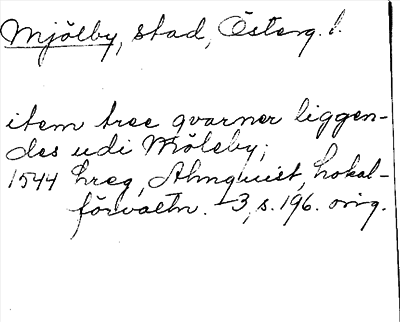 Mjölby, stad, Österg. l.
item tree qvarner liggen-
des udi Möleby;
1544 hreg, Almquist, Lokal-
förvaltn. 3, s. 196. orig.